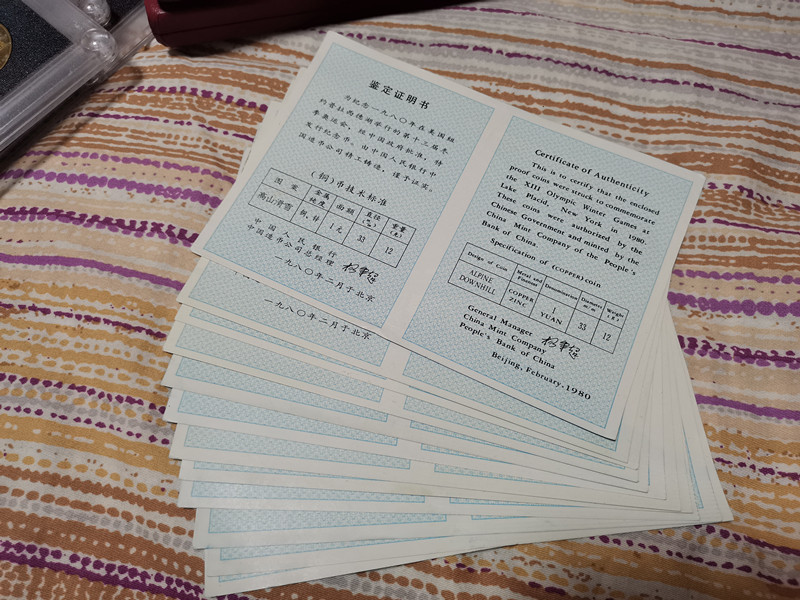 鉴定证明书
为纪念一九八〇年在美国纽
约普拉西德湖举行的第十三届冬
季奥运会，经中国政府批准，特
发行纪念币，由中国人民银行中
国造币公司精工铸造，谨予证实。
(铜)币技术标准
图案 金属纯度 面额 直径(%) 重量(克)
高山滑雪 铜.锌 1元 33 12
中国人民银行
中国造币公司总经理
一九八〇年二月于北京
一九八〇年二月于北京
Certificate of Authenticity
This is to certify that the enclosed
proof coins were struck to commemorate
the XIII Olympic Winter Games at
Lake Placid, New York in 1980.
These coins were authorized by the
Chinese Government and minted by the
China Mint Company of the People's
Bank of China.
Specification of (COPPER) coin
Design of Coin Metal and Fineness Denomination Diameter m/m Weight (g)
ALPINE DOWNHILL COPPER ZINC 1 YUAN 33 12
General Manager
China Mint Company
People's Bank of China
Beijing, February, 1980